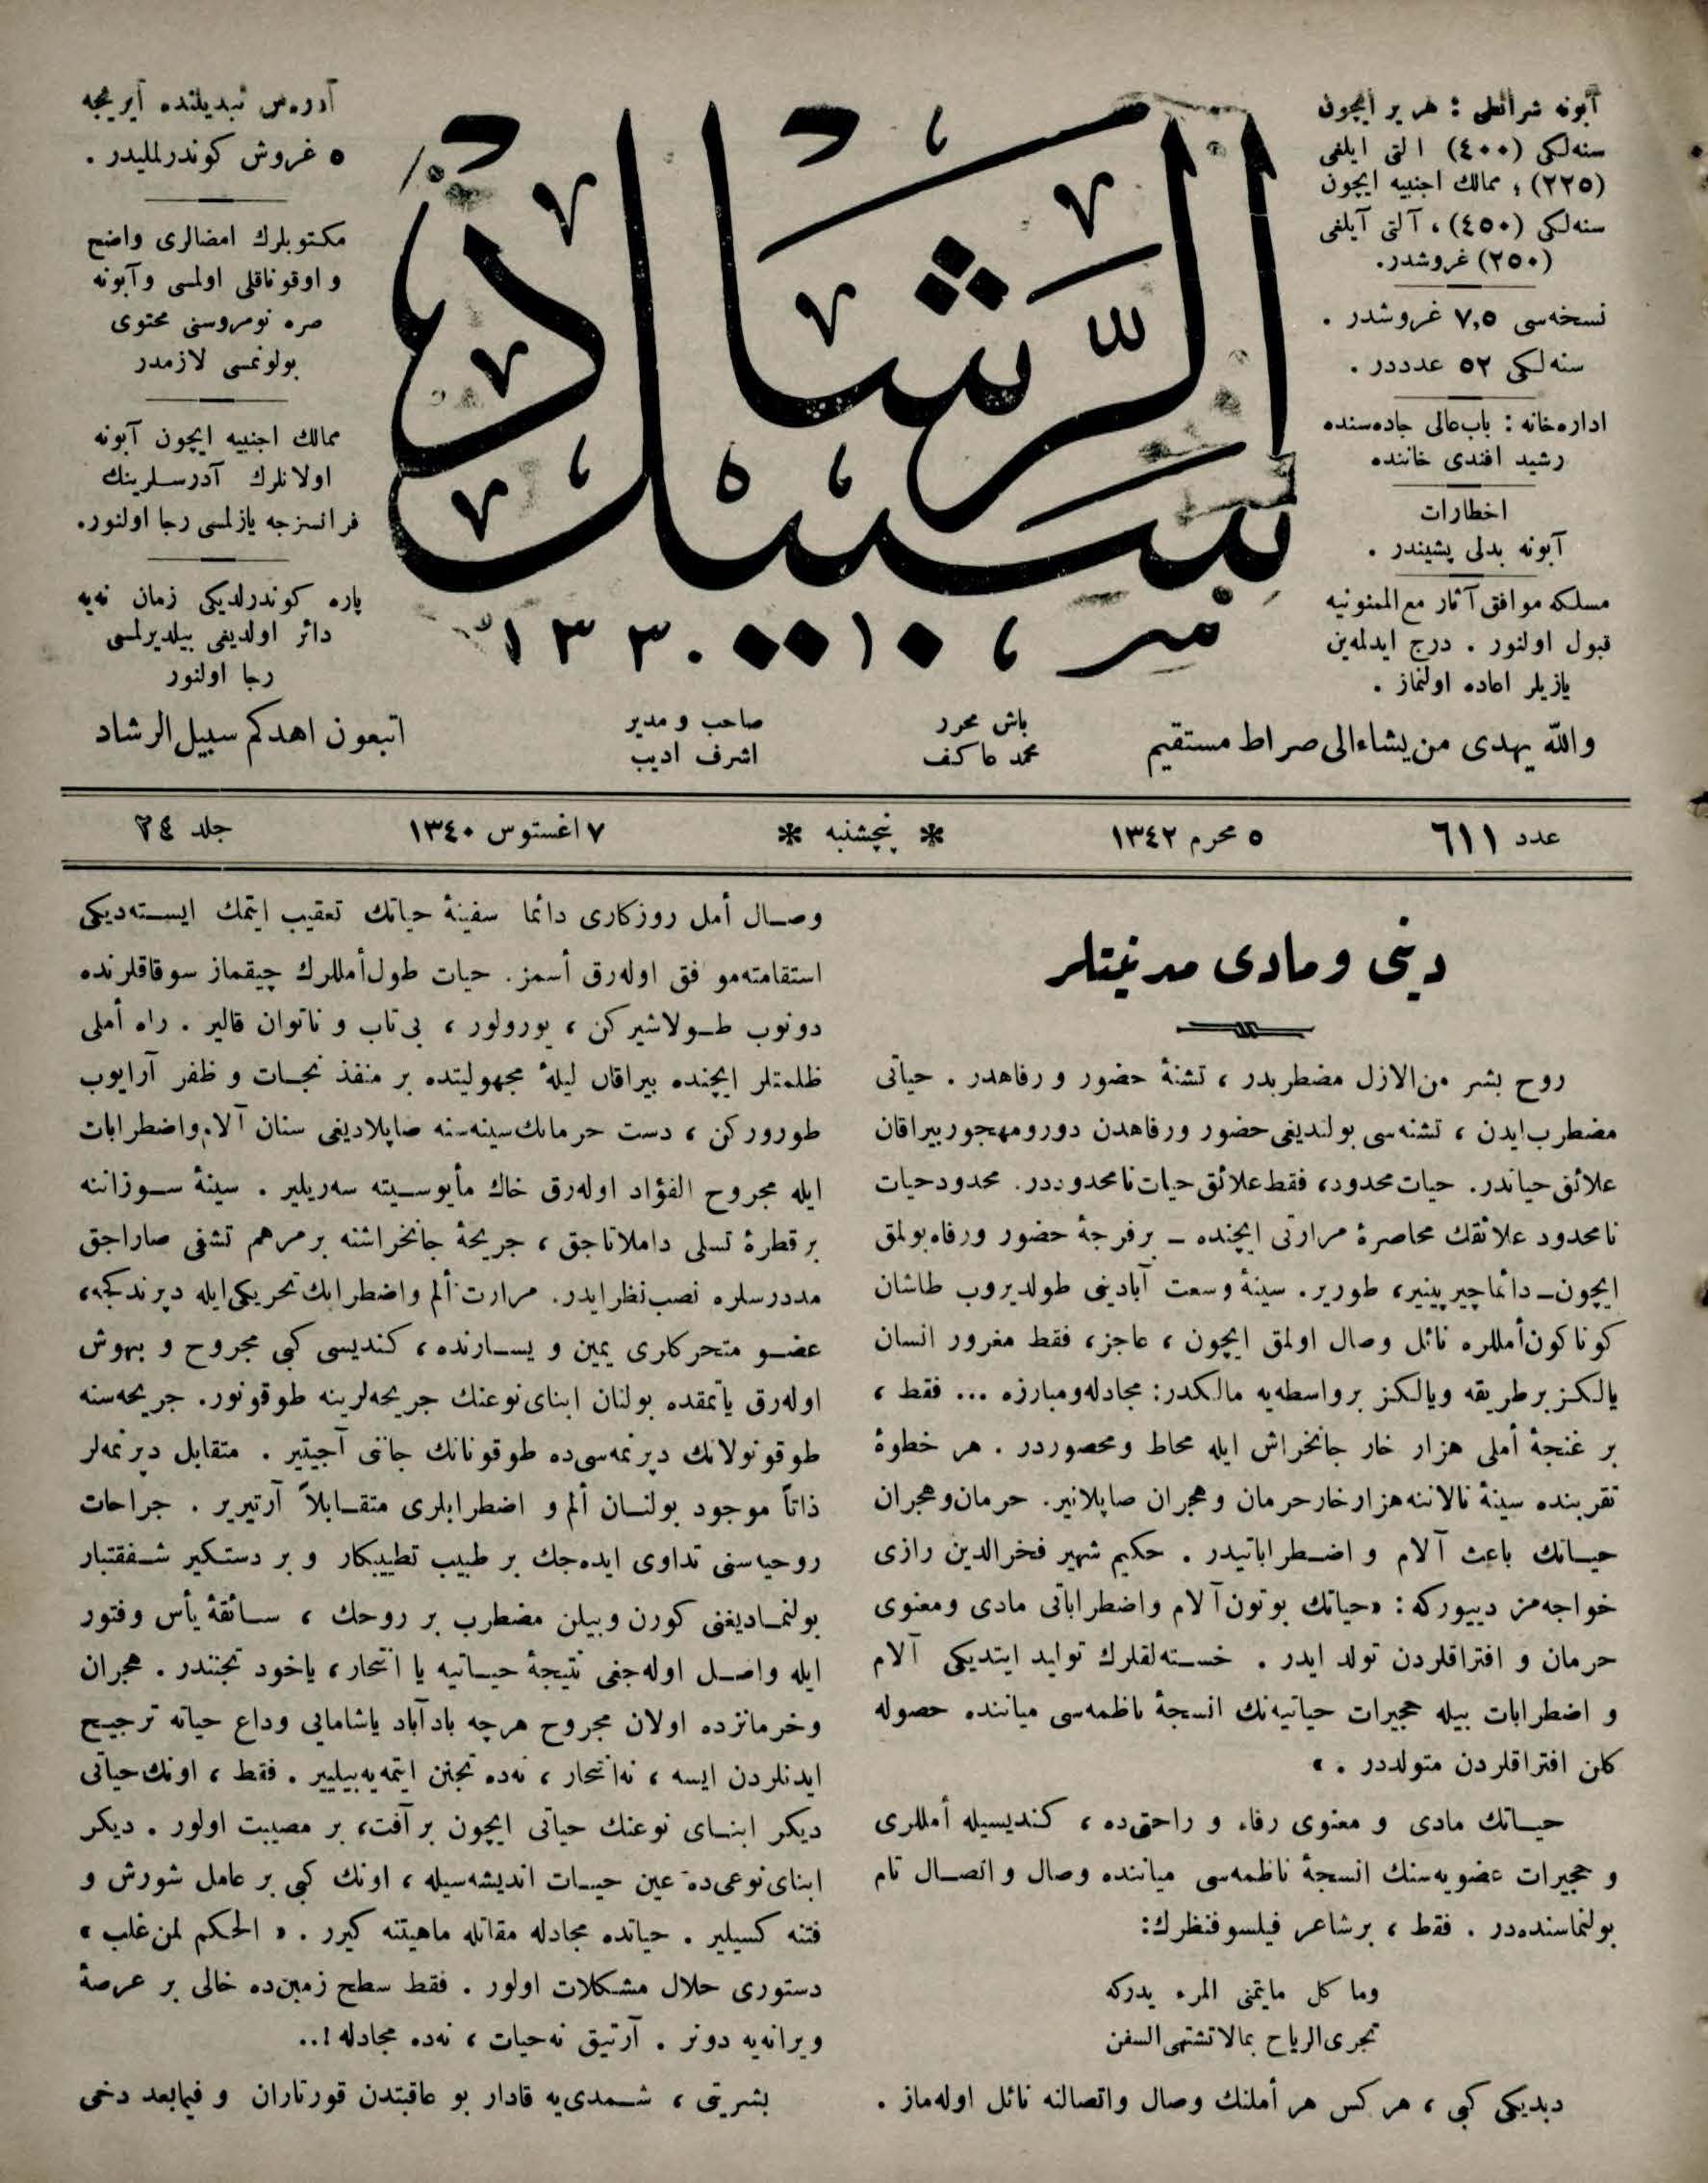 آبونه شرائطی : هر یر ایچون
سنه‌لكی (٤٠٠) التی ایلغی
(٢٢٥) ؛ ممالك اجنبیه ایچون
سنه‌لكی (٤٥٠) ، آلتی آیلغی
(٢٥٠) غروشدر.
نسخه‌سی ٧,٥ غروشدر .
سنه‌لكی ٥٢ عدددر .
اداره‌خانه : باب‌عالی جاده‌سنده
رشید افندی خاننده
اخطارات
آبونه بدلی پشیندر .
مسلكه موافق آثار مع‌الممنونیه
قبول اولنور . درج ایدلمه‌ین
یازیلر اعاده اولنماز .
سبیل الرشاد
آدره‌س تبدیلنده آیریجه
٥ غروش كوندرلملیدر .
مكتوبلرك امضالری واضح
و اوقوناقلی اولمسی وآبونه
صره نومروسنی محتوی
بولونمسی لازمدر
ممالك اجنبیه ایچون آبونه
اولانلرك آدرسلرینك
فرانسزجه یازلمسی رجا اولنور.
پاره كوندرلدیكی زمان نه‌یه
دائر اولدیغی بیلدیرلمسی
رجا اولنور
والله یهدی من یشاء الی صراط مستقیم
باش محرر
محمد عاكف
صاحب و مدیر
اشرف ادیب
اتبعون اهدكم سبیل الرشاد
عدد ٦١١ ٥ محرم ١٣٤٢ * پنجشنبه * ٧ اغستوس ١٣٤٠ جلد ٢٤
دینی و مادی مدنیتلر
روح بشر من‌الازل مضطربدر ، تشنۀ حضور و رفاهدر . حیاتی
مضطرب ایدن ، تشنه‌سی بولندیغی حضور ورفاهدن دورومهجور بیراقان
علائق حیاتدر. حیات محدود، فقط علائق حیات نامحدوددر. محدود حیات
نامحدود علائقك محاصرۀ مرارتی ایچنده ــ برفرجۀ حضور ورفاه بولمق
ایچون ــ دائما چیرپینیر، طوریر. سینۀ وسعت آبادینی طولدیروب طاشان
كوناكون أمللره نائل وصال اولمق ایچون ، عاجز، فقط مغرور انسان
یالكز برطریقه ویالكز برواسطه‌یه مالكدر: مجادله‌ومبارزه ... فقط ،
بر غنجۀ أملی هزار خار جانخراش ایله محاط ومحصوردر . هر خطوۀ
تقربنده سینۀ نالاننه هزار خار حرمان و هجران صاپلانیر. حرمان‌وهجران
حیــاتك باعث آلام و اضــطراباتیدر . حكیم شهیر فخرالدین رازی
خواجه‌مز دییوركه : «حیاتك بوتون آلام واضطراباتی مادی ومعنوی
حرمان و افتراقلردن تولد ایدر . خســته‌لقلرك تولید ایتدیكی آلام
و اضطرابات بیله حجیرات حیاتیه‌نك انسجۀ ناظمه‌سی میاننده حصوله
كلن افتراقلردن متولددر . »
حیــاتك مادی و معنوی رفاه و راحتی‌ده ، كندیسیله أمللری
و حجیرات عضویه‌سنك انسجۀ ناظمه‌سی میاننده وصال و اتصــال تام
بولنماسنده‌در . فقط ، برشاعر فیلسوفنظرك:
وما كل مایتمنی المرء یدركه
تجری الریاح بمالاتشتهی السفن
دیدیكی كبی ، هركس هر أملنك وصال واتصالنه نائل اوله‌ماز .
وصــال أمل روزكاری دائما سفینۀ حیاتك تعقیب ایتمك ایســته‌دیكی
استقامته‌موافق اوله‌رق أسمز. حیات طول أمللرك چیقماز سوقاقلرنده
دونوب طــولاشیركن ، یورولور ، بی‌تاب و ناتوان قالیر . راه أملی
ظلمتلر ایچنده بیراقان لیلۀ مجهولیتده بر منفذ نجــات و ظفر آرایوب
طوروركن ، دست حرمانك سینه‌سنه صاپلادیغی سنان آلام واضطرابات
ایله مجروح الفؤاد اوله‌رق خاك مأیوســیته سه‌ریلیر . سینۀ ســوزاننه
بر قطرۀ تسلی داملاتاجق ، جریحۀ جانخراشنه بر مرهم تشفی صاراجق
مددرسلره نصب نظر ایدر. مرارت ألم واضطرابك تحریكی ایله دپرندكجه،
عضــو متحركلری یمین و یســارنده ، كندیسی كبی مجروح و بیهوش
اوله‌رق یاتمقده بولنان ابنای نوعنك جریحه‌لرینه طوقونور. جریحه‌سنه
طوقونولانك دپرنمه‌سی‌ده طوقونانك جاننی آجیتیر . متقابل دپرنمه‌لر
ذاتاً موجود بولنــان ألم و اضطرابلری متقــابلاً آرتیریر . جراحات
روحیه‌سنی تداوی ایده‌جك بر طبیب تطییبكار و بر دستكیر شــفقتبار
بولنمــادیغنی كورن وبیلن مضطرب بر روحك ، ســائقۀ یأس وفتور
ایله واصــل اوله‌جغی نتیجۀ حیــاتیه یا انتحار، یاخود تجنندر . هجران
وخرمانزده اولان مجروح هرچه بادآباد یاشامایی وداع حیاته ترجیــح
ایدنلردن ایسه ، نه‌انتحار ، نه‌ده تجنن ایتمه‌یه‌بیلییر . فقط ، اونك حیاتی
دیكر ابنــای نوعنك حیاتی ایچون بر آفت، بر مصیبت اولور . دیكر
ابنای نوعی‌ده عین حیــات اندیشه‌سیله ، اونك كبی بر عامل شورش و
فتنه كسیلیر . حیاتده مجادله مقاتله ماهیتنه كیرر . « الحكم لمن غلب »
دستوری حلال مشكلات اولور . فقط سطح زمین‌ده خالی بر عرصۀ
ویرانه‌یه دونر . آرتیق نه‌حیات ، نه‌ده مجادله !..
بشریتی ، شــمدی‌یه قادار بو عاقبتدن قورتاران و فیمابعد دخی